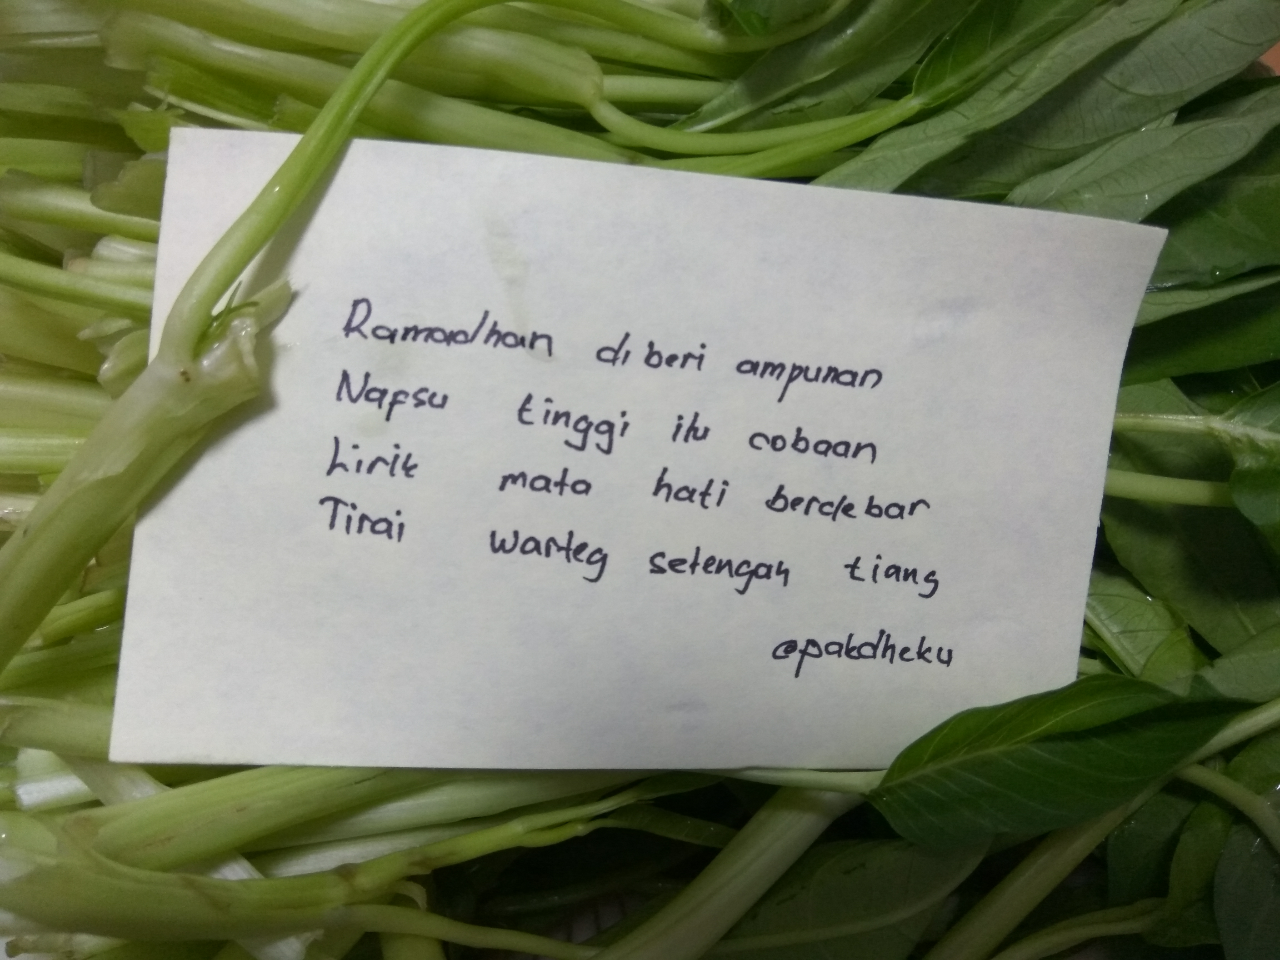 Ramadhan diberi ampunan
Nafsu tinggi itu cobaan
Lirik mata hati berdebar
Tirai warteg setengah tiang
@pakdheku